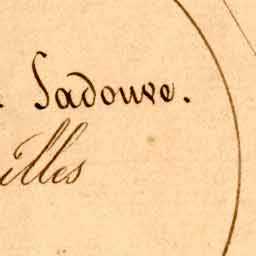 . Sadouve.
illes